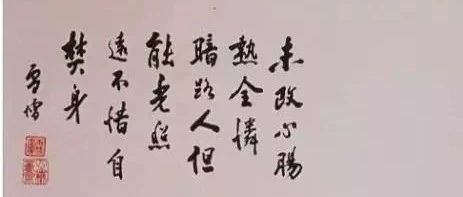 未改心腸
熱全憐
暗路人但
能光照
遠不惜自
焚身
雪